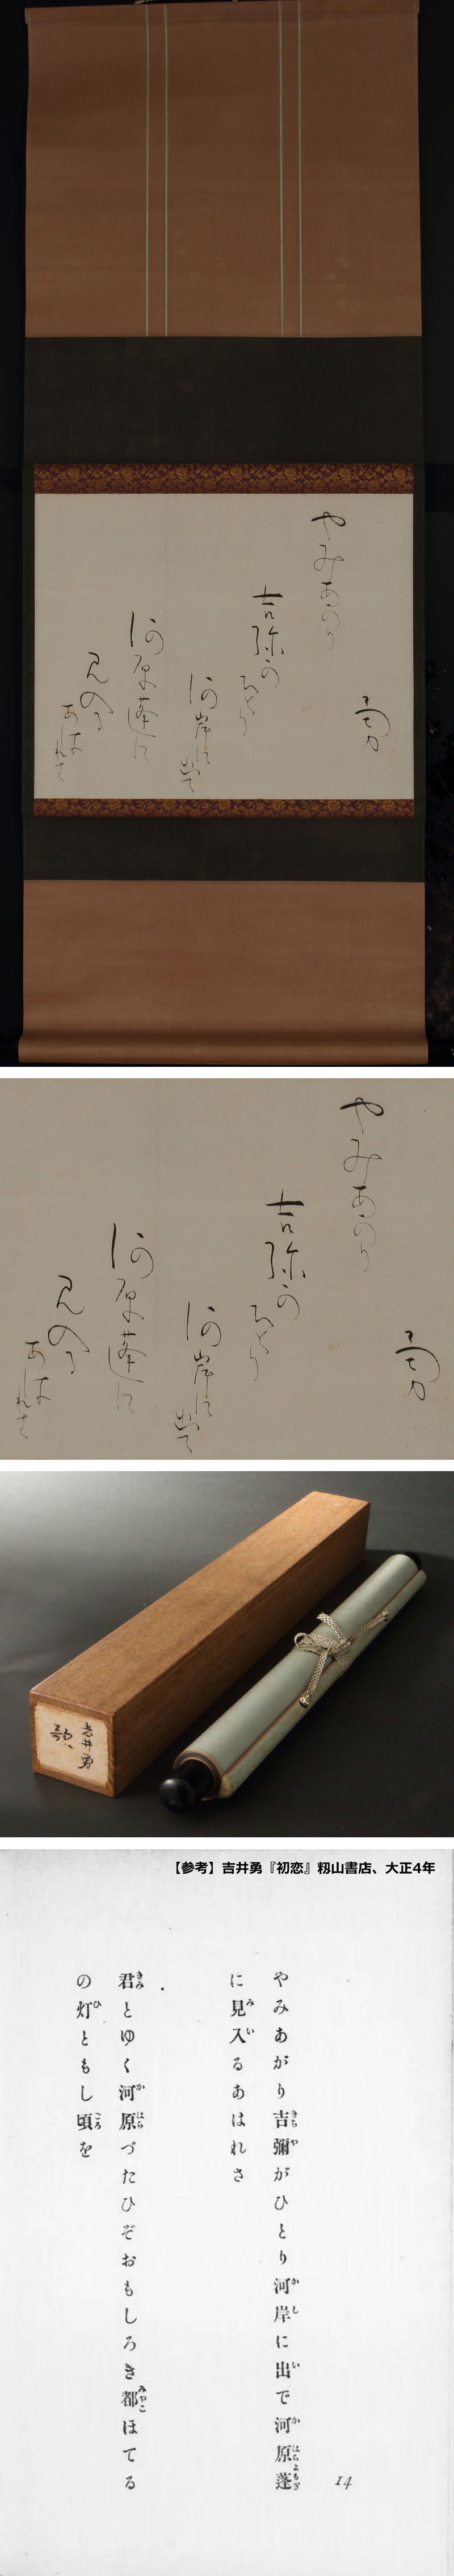 勇
やみあかり
吉弥か
ひとり
河岸に
出て
河原蓬に
見入る
あは
れさ
勇
やみあかり
吉弥か
ひとり
河岸に
出て
河原蓬に
見入る
あは
れさ
吉井勇
歌
【参考】吉井勇『初恋』籾山書店、大正4年
14
やみあがり吉彌がひとり河岸に出で河原蓬
に見入るあはれさ
君とゆく河原づたひぞおもしろき都ほてる
の灯ともし頃を